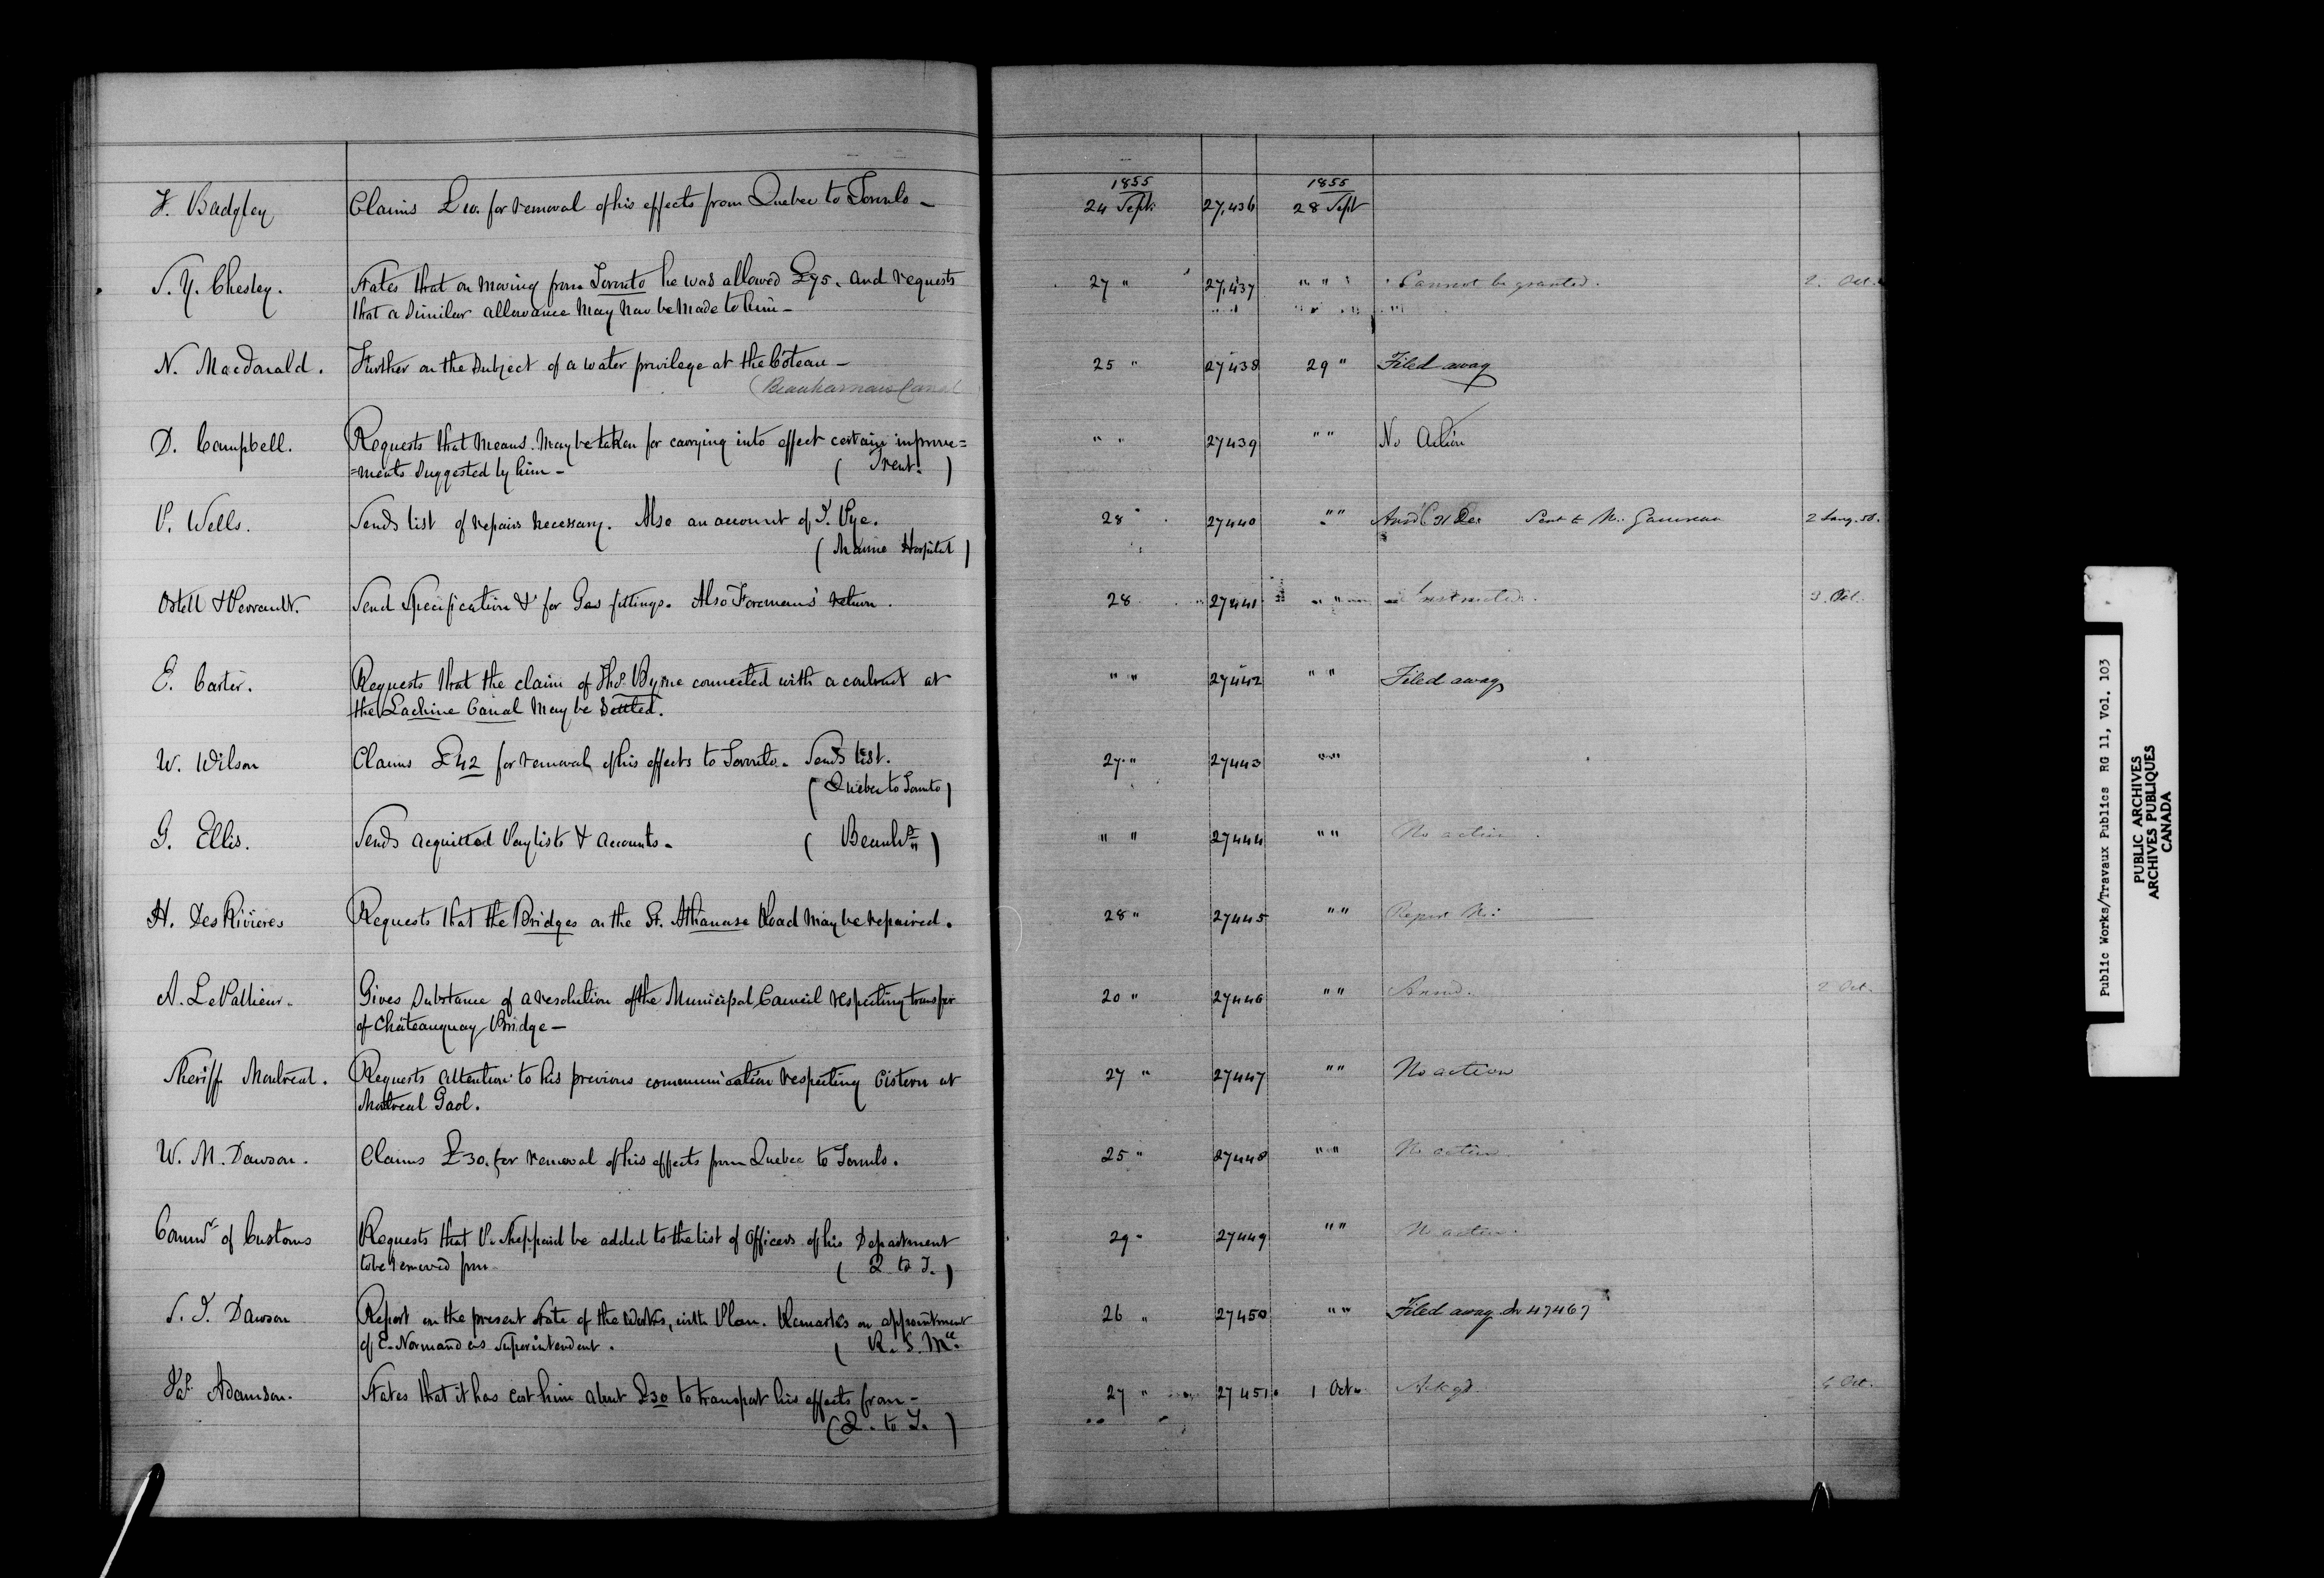 1855 1855
F. Badgley Claims £10. for removal of his effects from Quebec to Toronto - 24 Sept. 27,436 28 Sept
S. Y. Chesley. States that on moving from Toronto he was allowed £75. and requests 27 " 27,437 " " Cannot be granted. 2. Oct.
that a similar allowance may now be made to him -
N. Macdonald. Further on the subject of a water privilege at the Côteau - 25 " 27438 29 " Filed away
(Beauharnois Canal
D. Campbell. Requests that means may be taken for carrying into effect certain improve= " " 27439 " " No Action
=ments suggested by him - ( Trent. )
P. Wells. Sends list of repairs necessary. Also an account of T. Pye. 28 " 27440 " " Ansd 31 Dec Sent to Mr. Gauvreau 2 Jany. 56.
( Marine Hospital )
Ostell & Perrault. Send Specification &c for Gas fittings. Also Foremans' return. 28 27441 " " Instructed. 3. Oct.
E. Carter. Requests that the claim of Thos. Byrne connected with a contract at " " 27442 " " Filed away
the Lachine Canal may be settled.
W. Wilson Claims £42 for removal of his effects to Toronto. Sends list. 27 " 27443 " "
( Quebec to Toronto )
G. Ellis. Sends acquitted Paylists & accounts. ( Beauhs. ) " " 27444 " " No action.
H. DesRivières Requests that the Bridges on the St. Athanase Road may be repaired. 28 " 27445 " " Report No:
A. LePallieur. Gives substance of a resolution of the Municipal Council respecting transfer 20 " 27446 " " Ansd. 2 Oct.
of Châteauguay Bridge -
Sheriff Montreal. Requests attention to his previous communication respecting Cistern at 27 " 27447 " " No action
Montreal Gaol.
W. M. Dawson. Claims £30. for removal of his effects from Quebec to Toronto. 25 " 27448 " " No action
Commr. of Customs Requests that P. Sheppard be added to the list of Officers of his Department 29 " 27449 " " No action.
to be removed from - ( Q. to T. )
S. J. Dawson Report on the present state of the works, with Plan. Remarks on appointment 26 " 27450 " " Filed away in 47467
of E. Normand as Superintendent. ( R. S. Mce.
Jas. Adamson. States that it has cost him about £30 to transport his effects from - 27 " 27451. 1 Oct. Ackgd. 4 Oct.
( Q. to T. )
Public Works/Travaux Publics RG 11, Vol. 103
PUBLIC ARCHIVES
ARCHIVES PUBLIQUES
CANADA